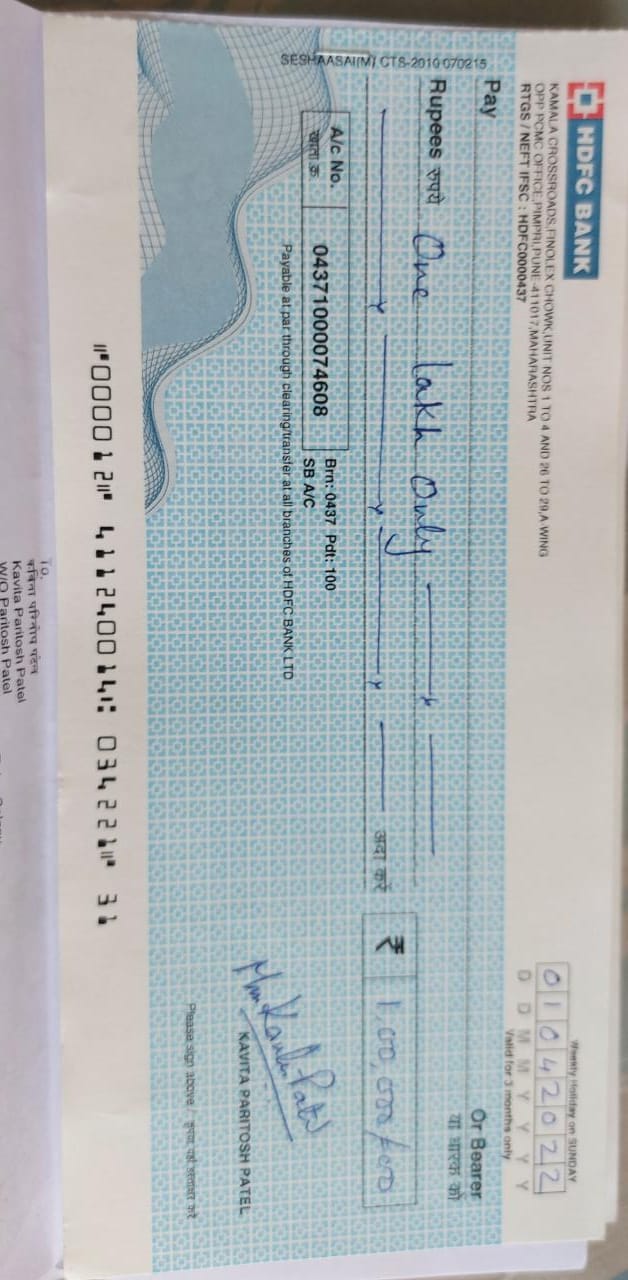 HDFC BANK
KAMALA CROSSROADS,FINOLEX CHOWK,UNIT NOS 1 TO 4 AND 26 TO 29,A-WING
OPP PCMC OFFICE,PIMPRI,PUNE-411017,MAHARASHTRA
RTGS / NEFT IFSC : HDFC0000437
Weekly Holiday on SUNDAY
01042022
D D M M Y Y Y Y
Valid for 3 months only
Pay
Or Bearer
या धारक को
Rupees रुपये One lakh Only
अदा करें
₹ 1,00,000/00
A/c No.
खाता क्र.
04371000074608
Brn: 0437 Pdt: 100
SB A/C
Payable at par through clearing/transfer at all branches of HDFC BANK LTD
SESHAASAI(M) / CTS-2010 070215
Kavita Patel
KAVITA PARITOSH PATEL
Please sign above / कृपया यहाँ हस्ताक्षर करें
⑈000012⑈ 411240014⑆ 034221⑈ 31
To,
Kavita Paritosh Patel
W/O Paritosh Patel